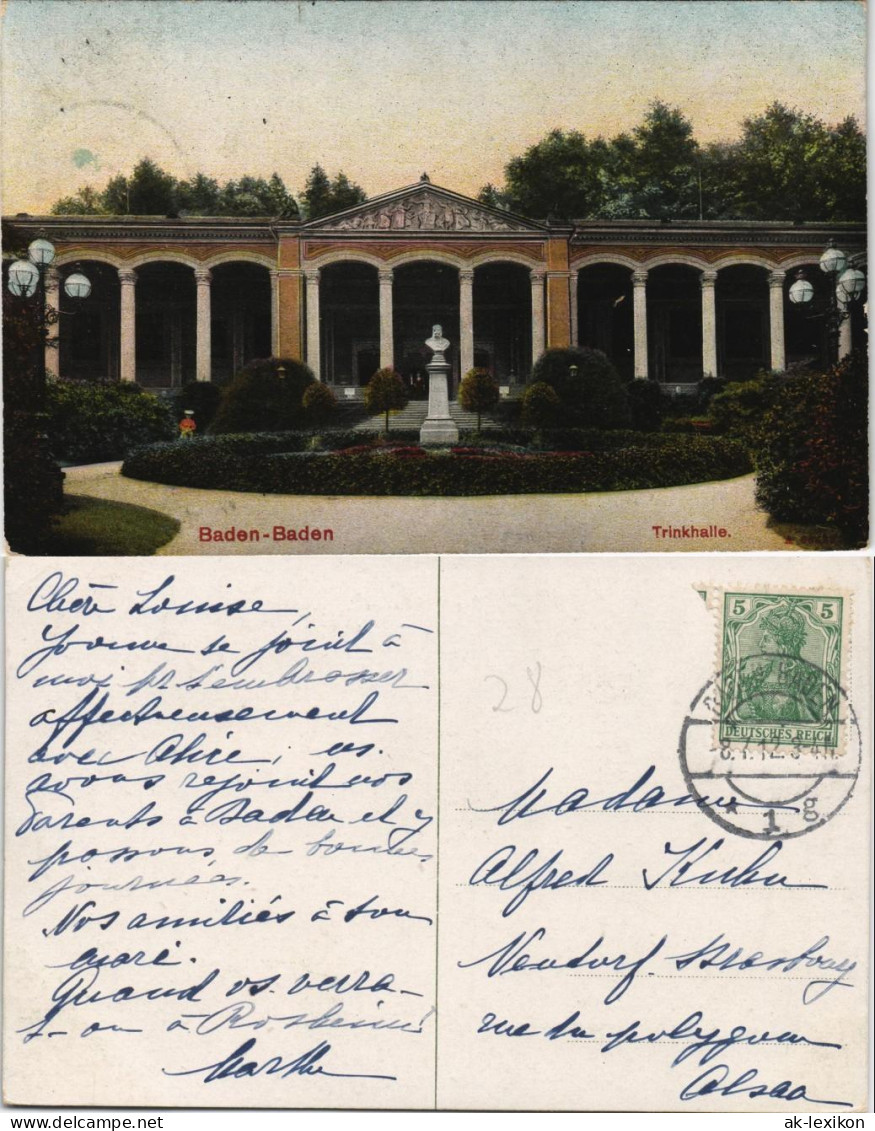 Baden-Baden
Trinkhalle.
Chère Louise,
Yvonne se joint à
moi pr t'embrasser
affectueusement
avec Alice, ns.
avons rejoint nos
parents à Baden et y
passons de bonnes
journées.
Nos amitiés à ton
mari.
Quand vs. verra-
t-on à Rosheim?
Marthe
28
5 5
DEUTSCHES REICH
BADEN
8.4.12. 3-4N.
* 1 g
Madame
Alfred Kuhn
Neudorf. Strasbourg
rue du polygone
Alsace
ak-lexikon